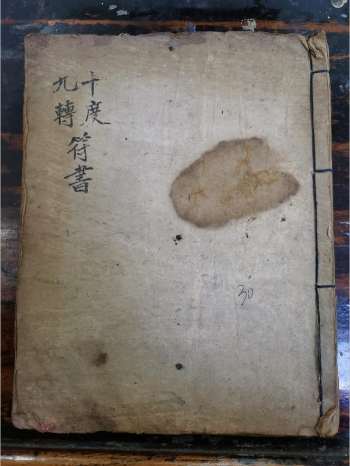 十度
九轉
符書
30